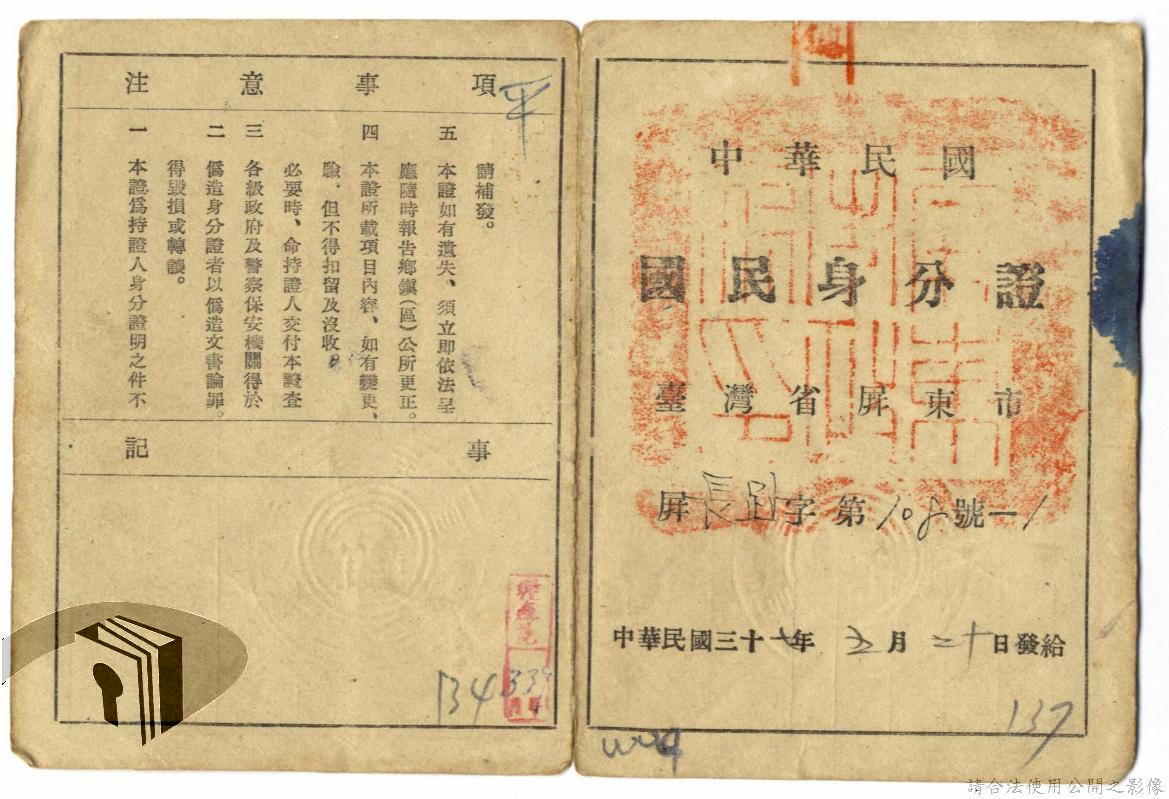 中華民國
國民身分證
臺灣省屏東市
屏長字第108號—1
中華民國三十七年五月二十日發給
137
注意事項
一 本證爲持證人身分證明之件不
得毀損或轉讓。
二 僞造身分證者以僞造文書論罪。
三 各級政府及警察保安機關得於
必要時、命持證人交付本證查
驗．但不得扣留及沒收。
四 本證所載項目內容、如有變更、
應隨時報告鄉鎮(區)公所更正。
五 本證如有遺失、須立即依法呈
請補發。
記事
134
請合法使用公開之影像